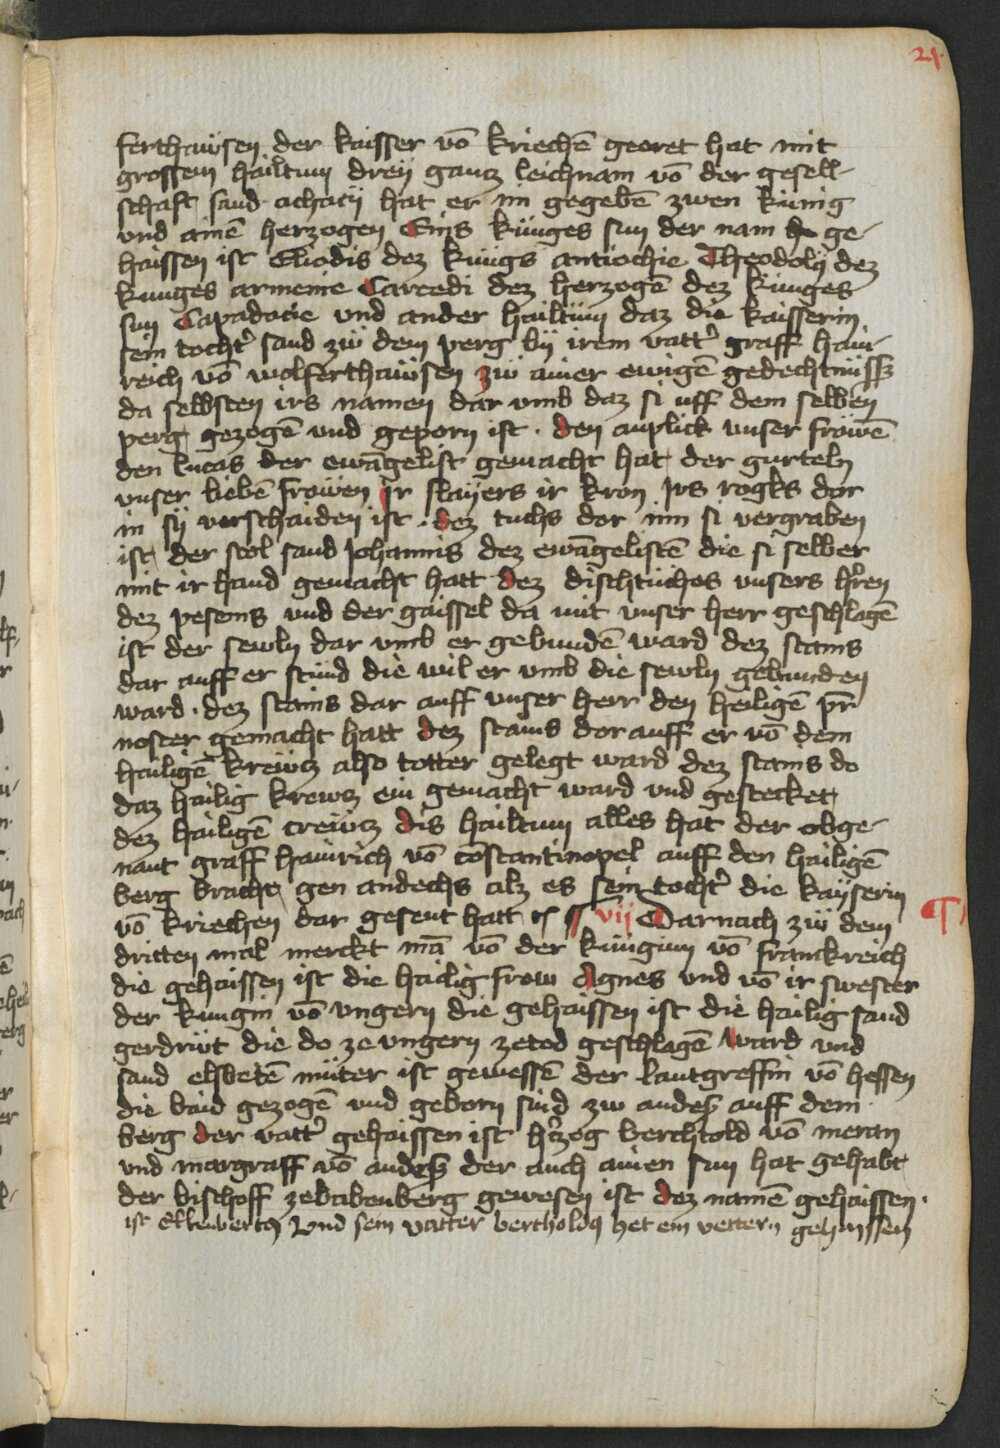 21.
ferthawsen der kaisser võ kriechẽ georet hat mit
grossem hailtum dreÿ gancz leichnam võ der gesell-
schaft sand achacÿ hat er im gegebẽ zwen kunig
vnd ainẽ herzogen Eins kunges sun der nam ge-
haissen ist Eliodis dez kungs antiochie Theodolÿ dez
kunges armenie Carcedi dez herzogẽ dez kunges
sun Capadocie vnd ander hailtum daz die kaisserin
sein tocht' sand zü dem perg bÿ irem vatt' graff hain-
reich võ wolferthaüsen zü ainer ewigẽ gedechtnüsß
da selbsten irs namen dar vmb daz si uff dem selben
perg gezogẽ vnd geporn ist . den anplick vnser frowẽ
den lucas der ewãgelist gemacht hat der gurteln
vnser liebẽ frowen Jr slaÿers ir kron Jrs rogks dor
in sÿ verschaiden ist . dez tuchs dor inn si vergraben
ist der stol sand Johannis dez ewãgelistẽ die si selber
mit ir hand gemacht hatt dez dischtuches vnsers hr̃en
dez pesems vnd der gaissel da mit vnser herr geschlagẽ
ist der sewln dar vmb er gebundẽ ward dez stains
dar auff er stund die wil er vmb die sewln gebunden
ward . dez stains dar auff vnser herr den heiligẽ pr̃
noster gemacht hatt dez stains dor auff er võ dem
hailigẽ krewcz also totter gelegt ward dez stains do
daz hailig krewcz ein gemacht ward vnd gestecket
dez hailigẽ crewcz dis hailtum alles hat der obge-
nant graff hainrich võ cõstantinopel auff den hailigẽ
berg bracht gen andechs alz es sein tocht' die kaÿserin
võ kriechen dar gesent hatt vij Darnach zü dem
dritten mal merckt mã võ der kungun võ franckreich
die gehaissen ist die hailig frow Agnes vnd võ ir swester
der kungin võ vngern die gehaissen ist die hailig sand
gerdrüt die do ze vngern zetod geschlagẽ ward vnd
sand elsbetẽ müter ist gewessẽ der lantgreffin võ hessen
die baid gezogẽ vnd geborn sind zw andeß auff dem
berg der vatt' gehaissen ist h'zog berchtold võ meran
vnd margraff võ andeß der auch ainen sun hat gehabt
der bischoff zebabenberg gewesen ist dez namẽ gehaissen .
ist Vnd sein vatter bertholdq het ein vettern gehaissen